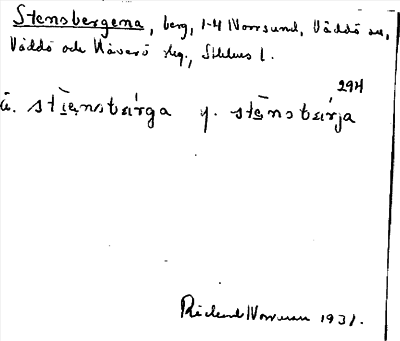 Stensbergena, berg, 1-4 Norrsund, Väddö sn,
Väddö och Häverö skg., Sthlms l.
294
ä. stiensbärga y. stensbärja
Rickard Norrman 1931.